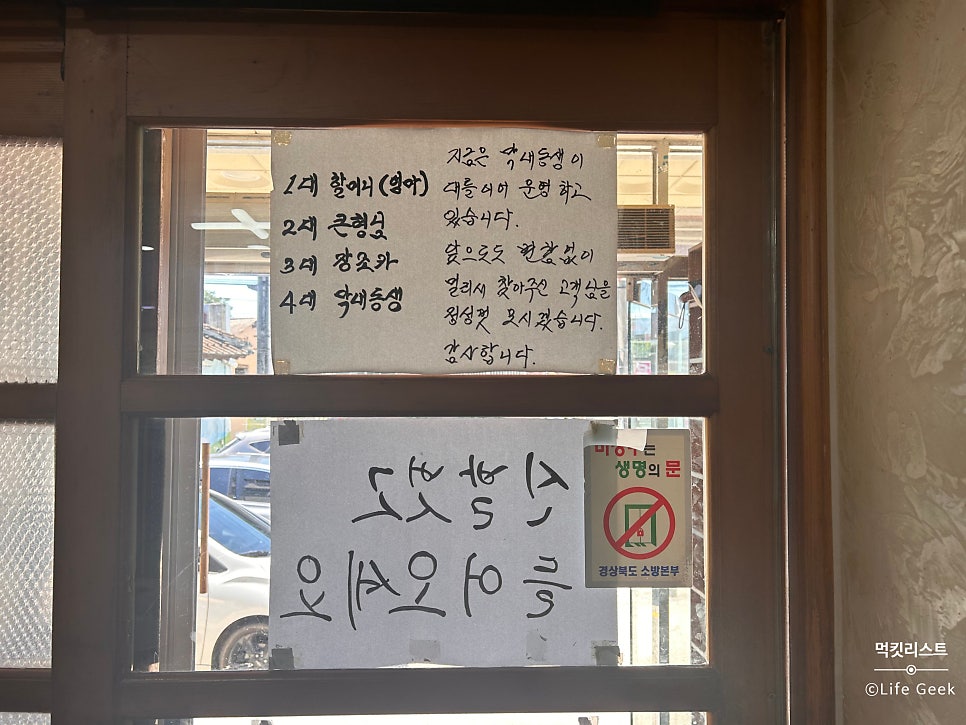 1대 할머니 (엄마)
2대 큰형님
3대 장조카
4대 막내동생
지금은 막내동생이
대를이어 운영하고
있습니다.
앞으로도 변함없이
멀리서 찾아주신 고객님을
정성껏 모시겠습니다.
감사합니다.
신발벗고
들어오세요
비상구는
생명의 문
경상북도 소방본부
먹킷리스트
©Life Geek